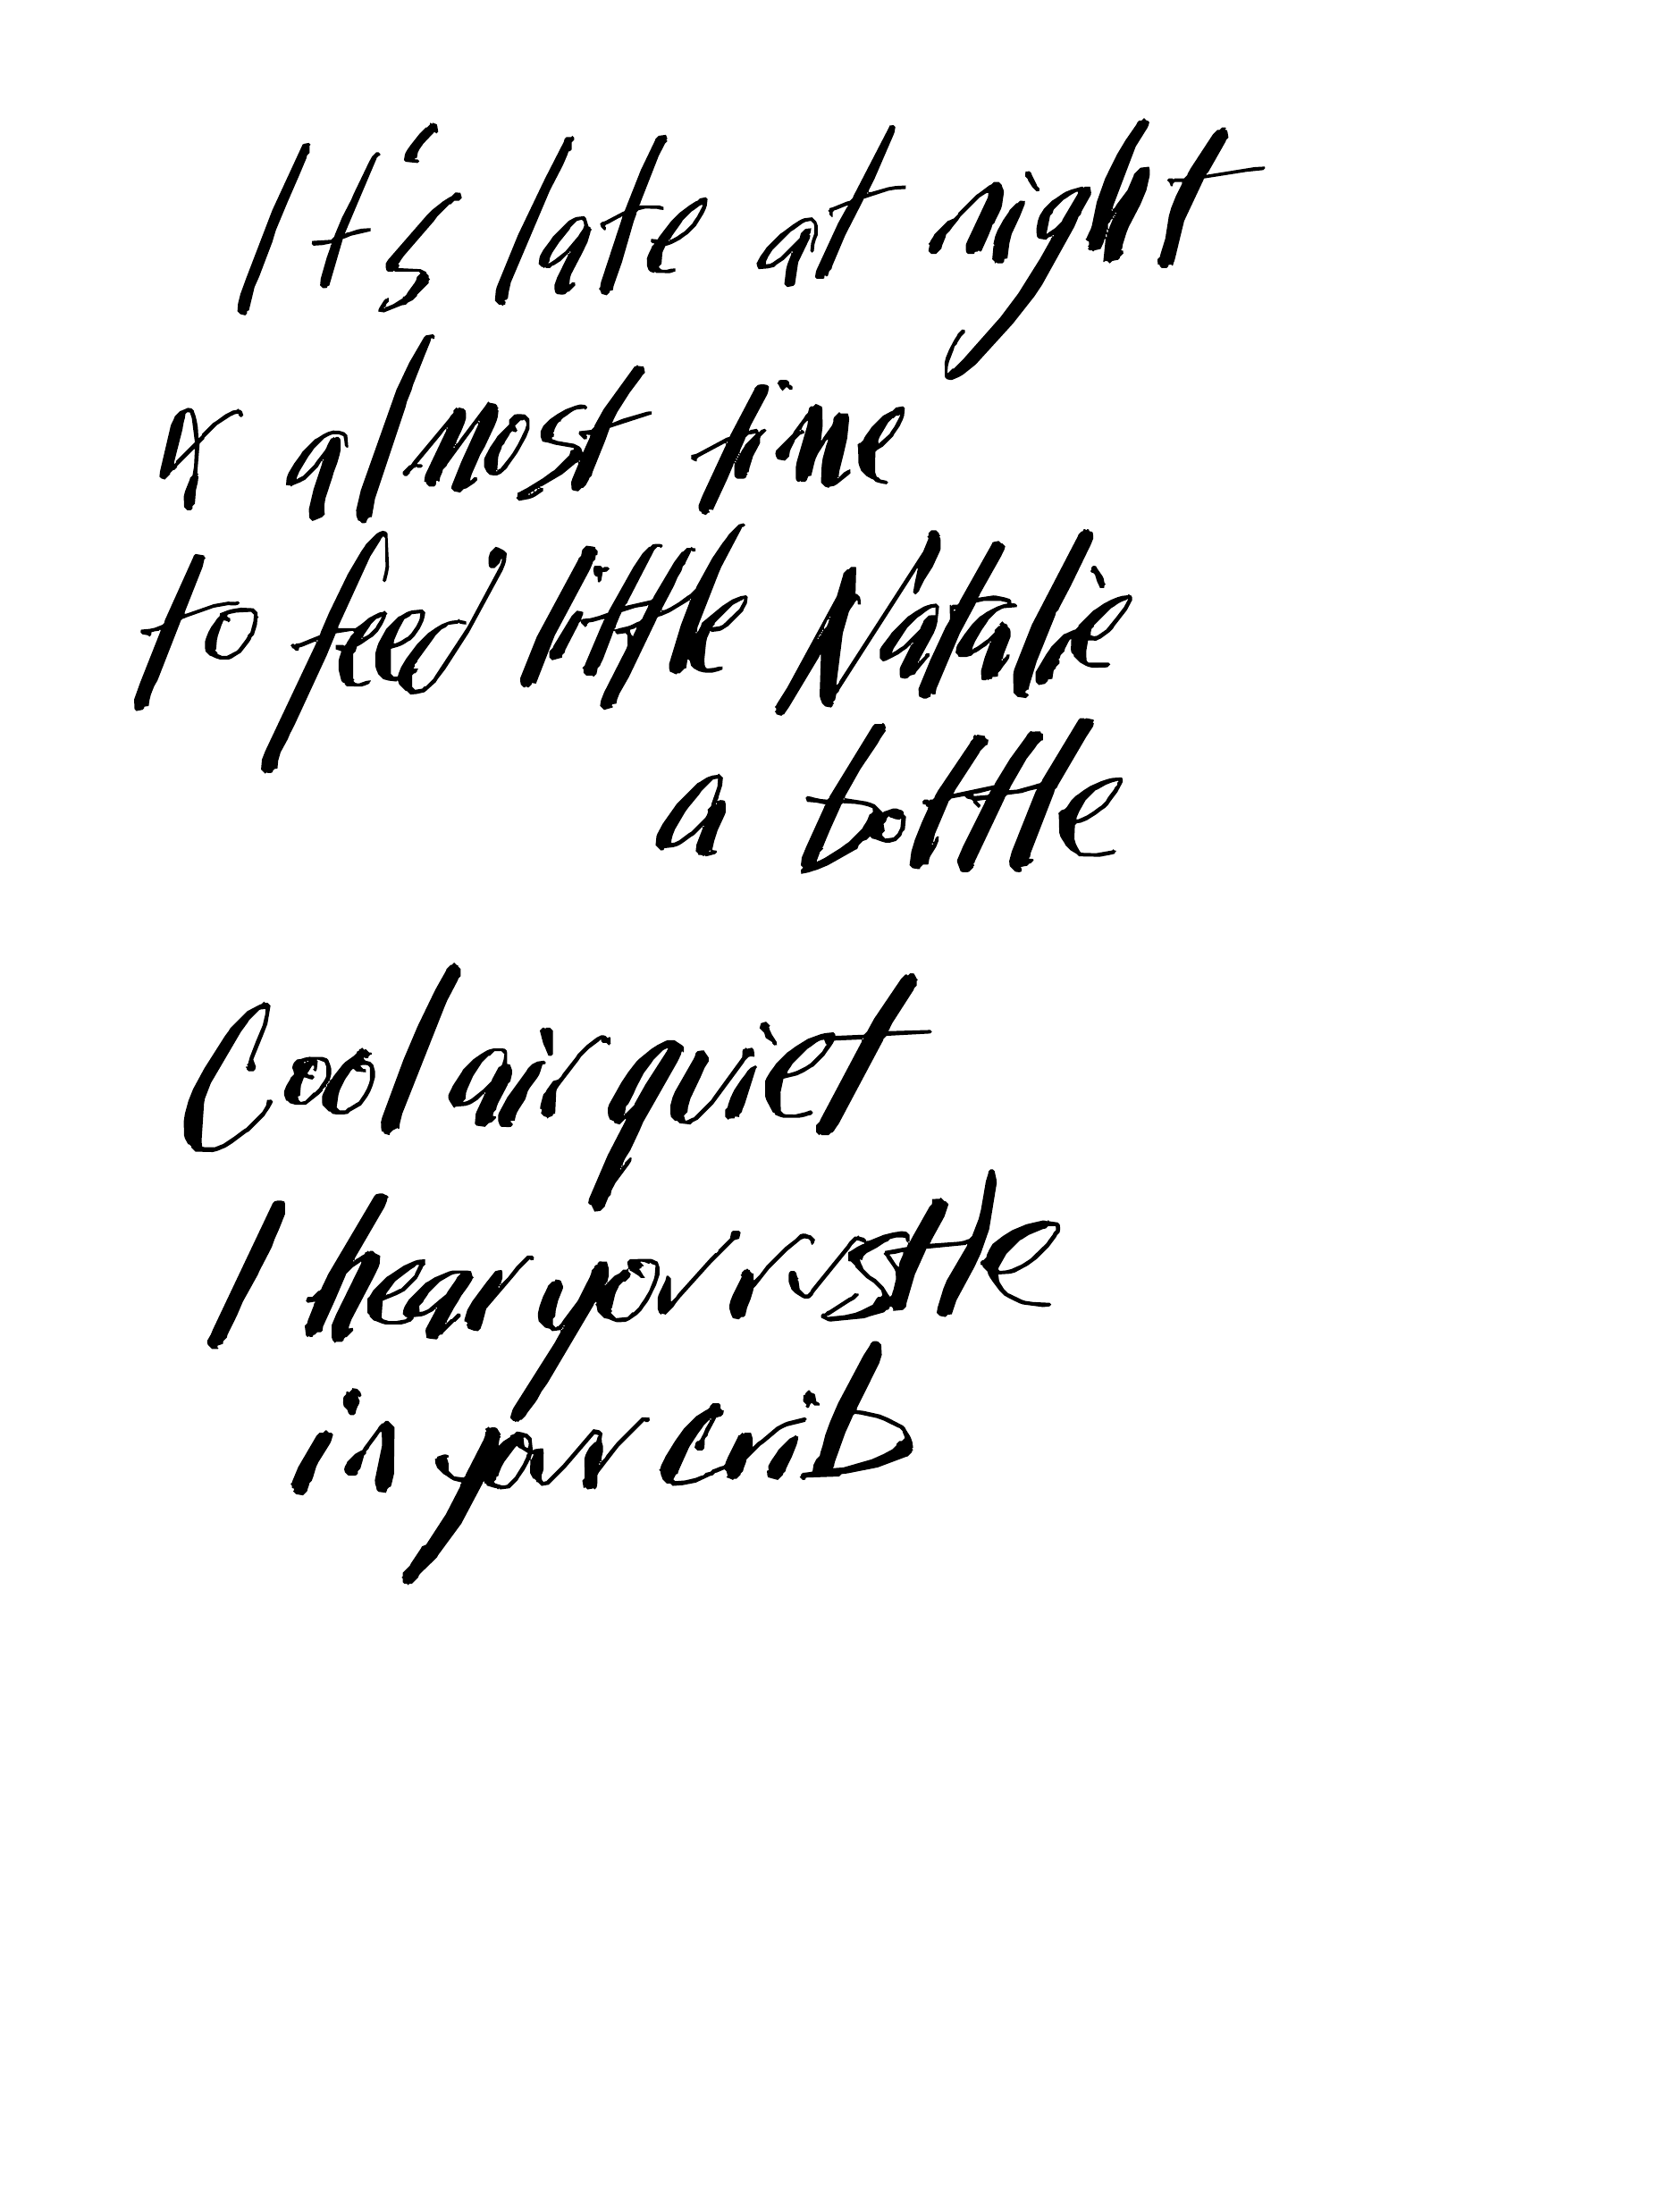 It's late at night
& almost time
to feed little Natalie
a bottle
Cool air quiet
I hear you rustle
in your crib